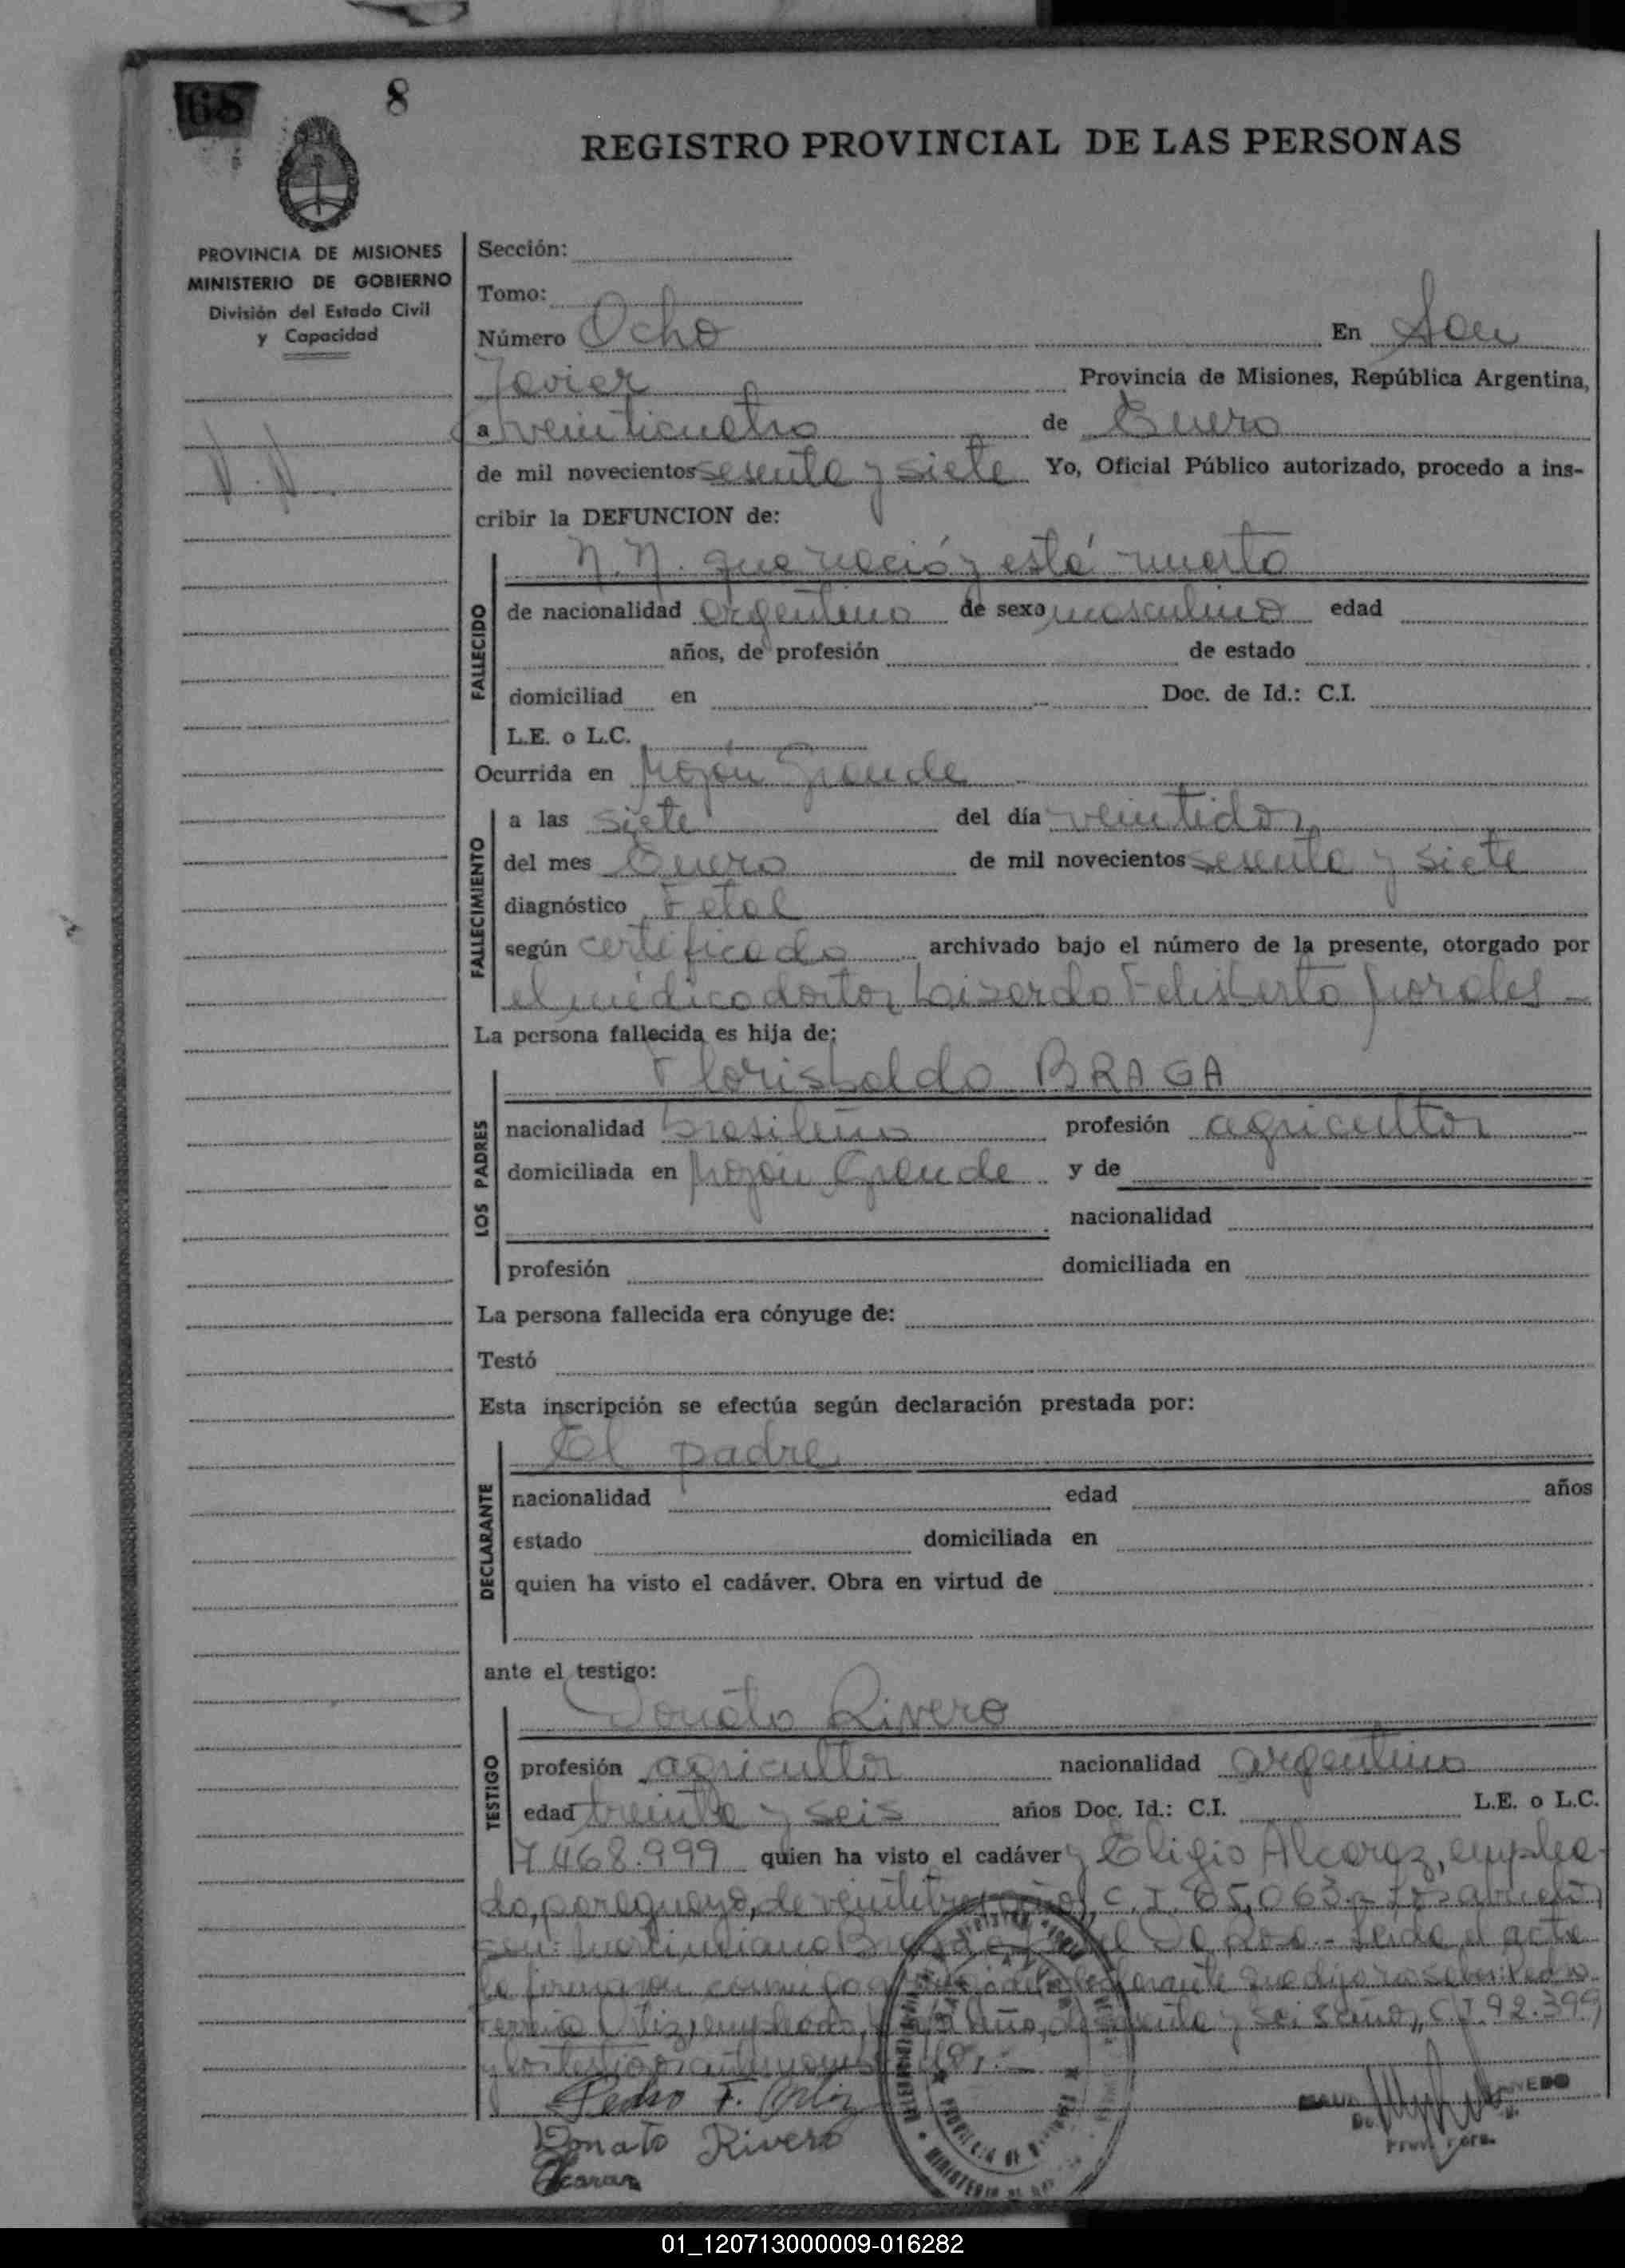 68
8
REGISTRO PROVINCIAL DE LAS PERSONAS
PROVINCIA DE MISIONES
MINISTERIO DE GOBIERNO
División del Estado Civil
y Capacidad
N.N.
Sección:
Tomo:
Número Ocho En San
Javier Provincia de Misiones, República Argentina,
a veinticuatro de Enero
de mil novecientos sesenta y siete Yo, Oficial Público autorizado, procedo a ins-
cribir la DEFUNCION de:
FALLECIDO
N.N. que nació y está muerto
de nacionalidad argentino de sexo masculino edad
años, de profesión de estado
domiciliad en Doc. de Id.: C.I.
L.E. o L.C.
Ocurrida en Mojón Grande
FALLECIMIENTO
a las siete del día veintidos
del mes Enero de mil novecientos sesenta y siete
diagnóstico Fetal
según certificado archivado bajo el número de la presente, otorgado por
el médico doctor Lisardo Felisberto Morales
La persona fallecida es hija de:
LOS PADRES
Florisbaldo BRAGA
nacionalidad brasileño profesión agricultor
domiciliada en Mojón Grande y de
nacionalidad
profesión domiciliada en
La persona fallecida era cónyuge de:
Testó
Esta inscripción se efectúa según declaración prestada por:
DECLARANTE
El padre
nacionalidad edad años
estado domiciliada en
quien ha visto el cadáver. Obra en virtud de
ante el testigo:
TESTIGO
Donato Rivero
profesión agricultor nacionalidad argentino
edad treinta y seis años Doc. Id.: C.I. L.E. o L.C.
7.468.999 quien ha visto el cadáver y Eligio Alcaraz, emplea-
do, paraguayo, de C.I. 65.063
Da Rosa.- Leida el acta
la firmaron conmigo
empleado, y seis años, C.I. 92.399
y los testigos
Pedro F. Ortiz
Donato Rivero
Alcaraz
01_120713000009-016282